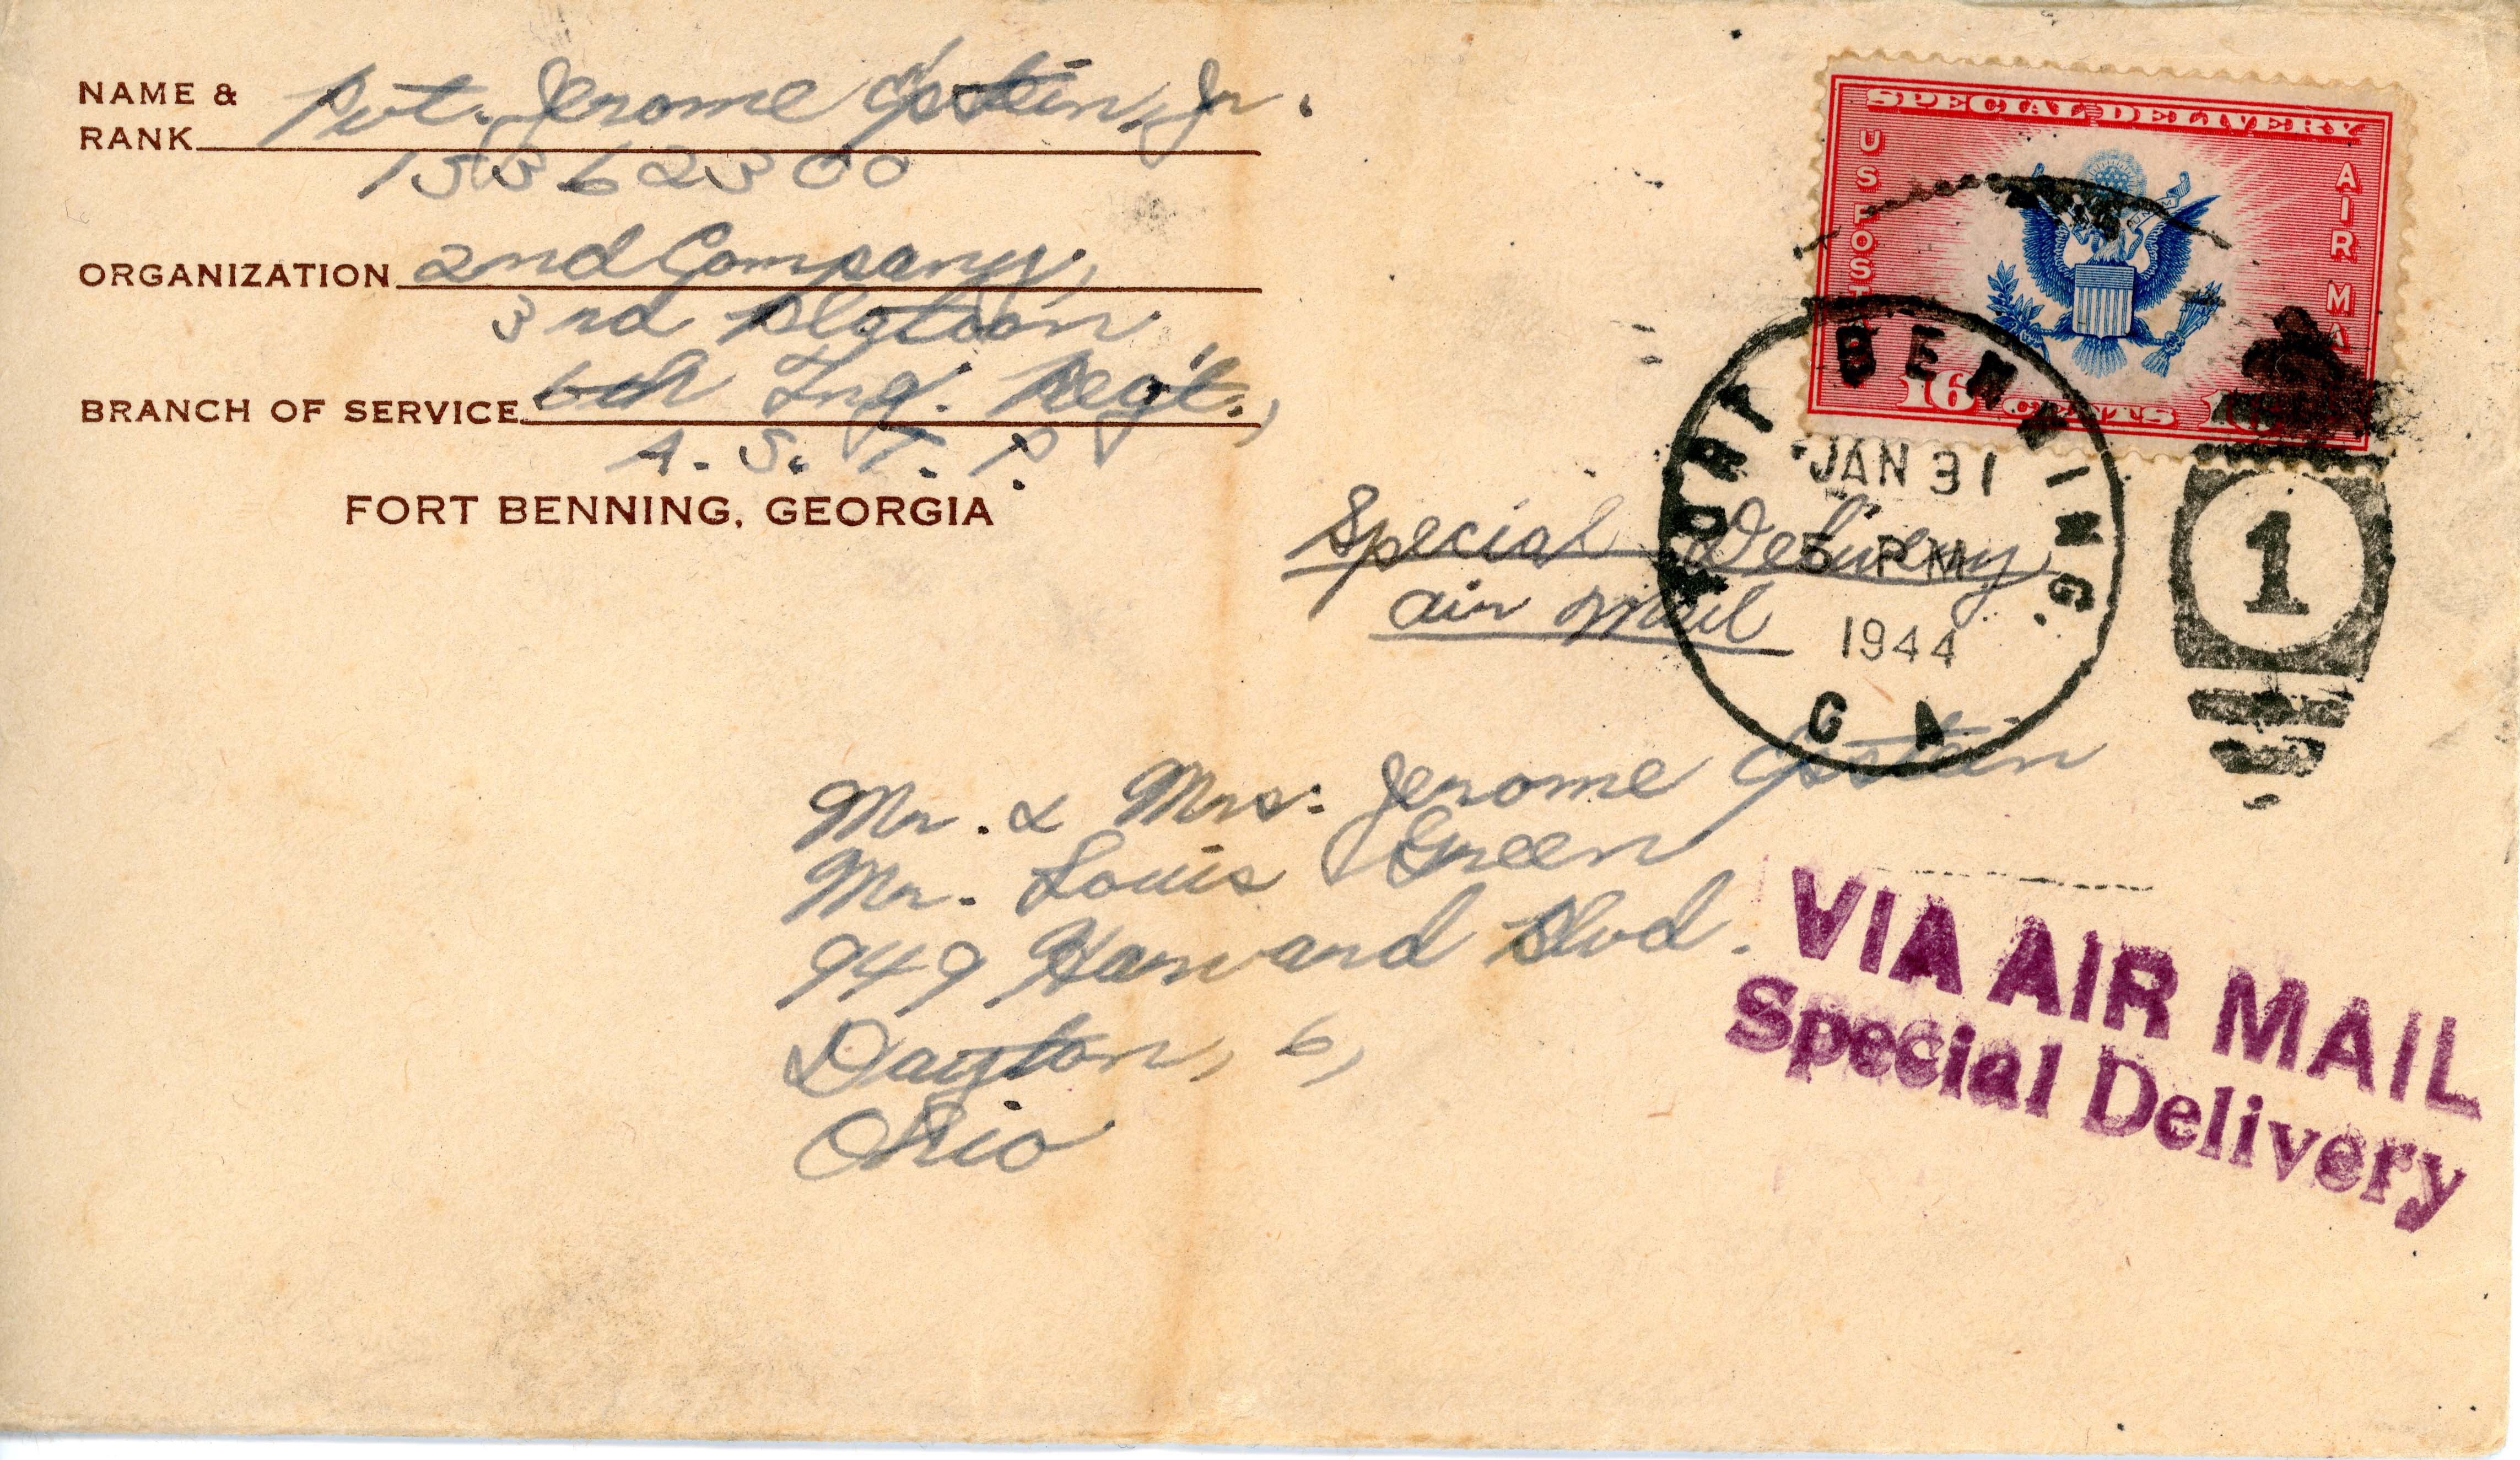 NAME & Pvt. Jerome Epstein, Jr.
RANK
15362300
ORGANIZATION 2nd Company,
3rd Platoon
BRANCH OF SERVICE 6th Trg. Reg't.,
A.S.T.P.
FORT BENNING, GEORGIA
SPECIAL DELIVERY
U S POSTA
AIR MA
16 CENTS 16
FORT BENNING.
JAN 31
5 PM
1944
GA
1
Special Delivery
air mail
Mr. & Mrs. Jerome Epstein
Mr. Louis Green
949 Harvard Blvd.
Dayton, 6,
Ohio
VIA AIR MAIL
Special Delivery